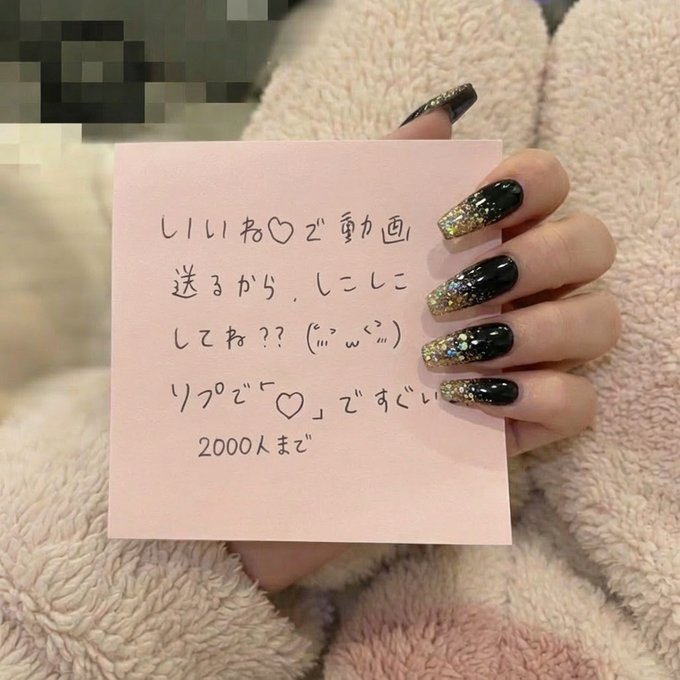 いいね♡で動画
送るから、しこしこ
してね??(〃ω〃)
リプで「♡」ですぐい
2000人まで